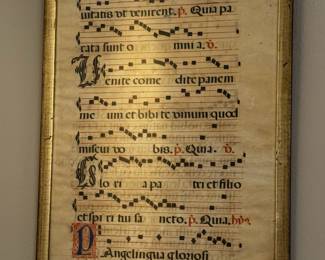 uitatis vt venirent. p. Quia pa
rata sunt o mni a. v.
Venite come dite panem
me um et bibi te vinum quod
miscui vo bis. p. Quia. v.
Glo ri a pa tri et filio
et spi ri tu i sa ncto. p. Quia.
Pangelingua gloriosi